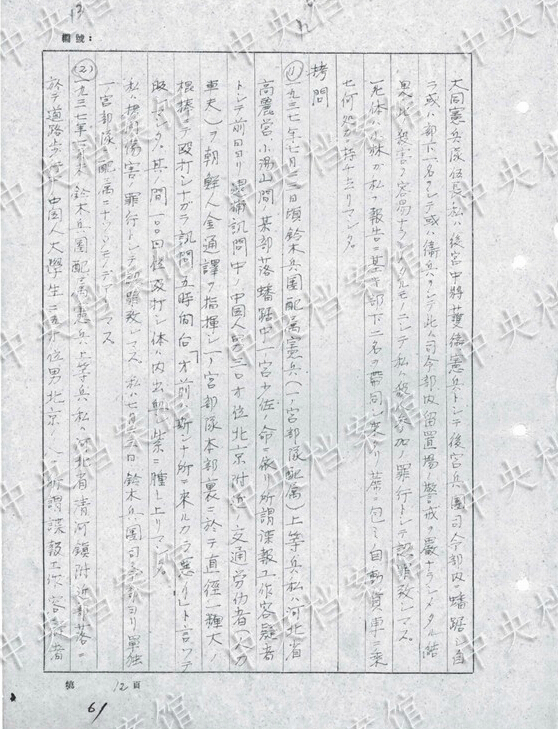 欄號：
大同憲兵隊伍長 私ハ後宮中將護衛憲兵トシテ後宮兵團司令部内ニ蟠踞 自
ラ或ハ部下一名ヲシテ或ハ衛兵ヲシテ此ノ司令部内留置場ノ警戒ヲ嚴ナラシメタル結
果此ノ殺害ヲ容易ナラシメタルモノニシテ私ハ殺害参加ノ罪行トシテ認罪致シマス。
死体ハ小林ガ私ノ報告ニ基キ部下二名ヲ帶同シ来リ蓆ニ包ミ自動貨車ニ乘
セ何処カ持チ去リマシタ。
拷問
(1) 一九三七年七月二三日頃鈴木兵團配属憲兵(一ノ宮部隊配属)上等兵 私ハ河北省
高麗営小湯山間某部落蟠踞中一ノ宮少佐ノ命ニ依リ所謂諜報工作容疑者
トシテ前日ヨリ 訊問中ノ中国人男三〇才位北京附近ノ交通労働者(人力
車夫)ヲ朝鮮人金通譯ヲ指揮シ一ノ宮部隊本部裏ニ於テ直径一糎大ノ
棍棒ニテ殴打シナガラ訊問五時間「オ前ハ斯ンナ所ニ来ルカラ悪イ」ト言ッテ
殴リマシタ。其ノ間一〇〇回位殴打シ体ハ内出血シ紫ニ腫レ上リマシタ。
私ハ拷問傷害ノ罪行トシテ認罪致シマス。私ハ七月 日鈴木兵團司令部ヨリ單独
一ノ宮部隊ニ配属ニナッタモノデアリマス。
(2) 一九三七年 鈴木兵團配属憲兵上等兵 私ハ河北省清河鎮附近部落ニ
於テ道路歩行中ノ中国人大學生二五才位男北京 ヲ所謂諜報工作容疑者
第 12 頁
61
中央档案馆